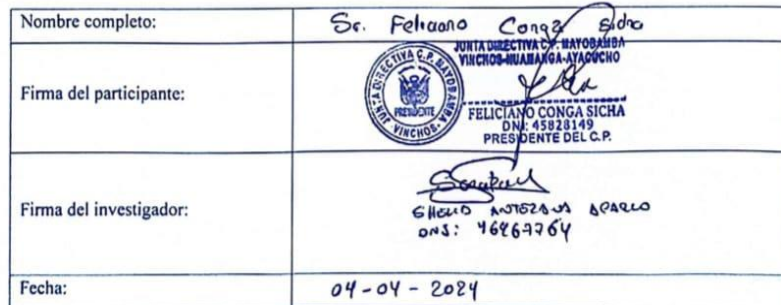 Nombre completo: Sr. Feliciano Conga Sicha
Firma del participante:
JUNTA DIRECTIVA C.P. MAYOBAMBA
VINCHOS-HUAMANGA-AYACUCHO
JUNTA DIRECTIVA C.P. MAYOBAMBA
PRESIDENTE
VINCHOS
FELICIANO CONGA SICHA
DNI: 45828149
PRESIDENTE DEL C.P.
Firma del investigador:
ANTEZANA
DNI: 46267764
Fecha: 04-04-2024